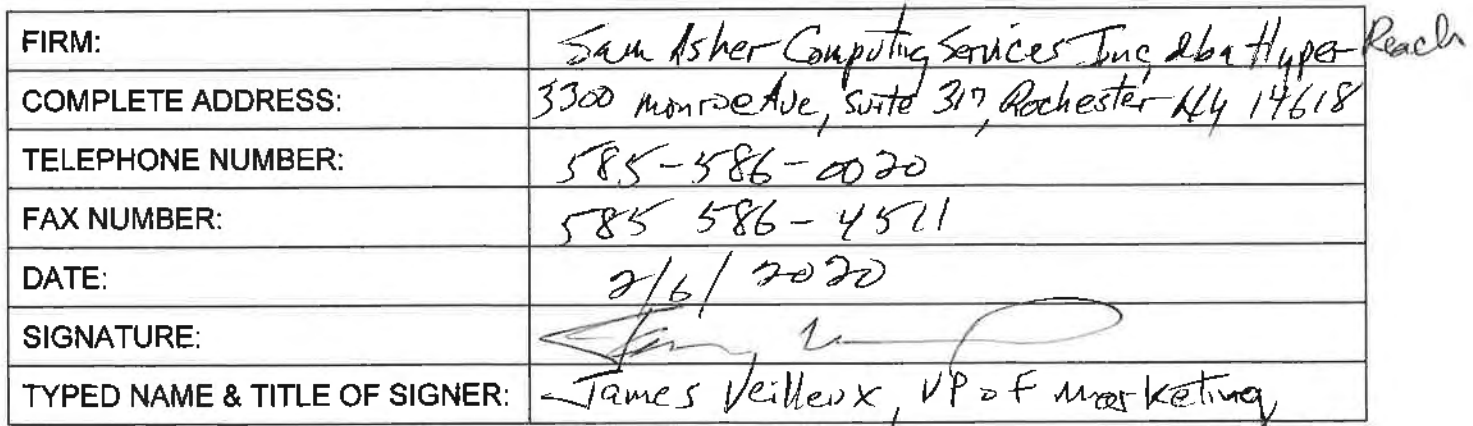 FIRM: Sam Asher Computing Services Inc, dba Hyper-Reach
COMPLETE ADDRESS: 3300 monroe Ave, suite 317, Rochester NY 14618
TELEPHONE NUMBER: 585-586-0020
FAX NUMBER: 585 586-4511
DATE: 2/6/2020
SIGNATURE:
TYPED NAME & TITLE OF SIGNER: James Veilleux, VP of Marketing